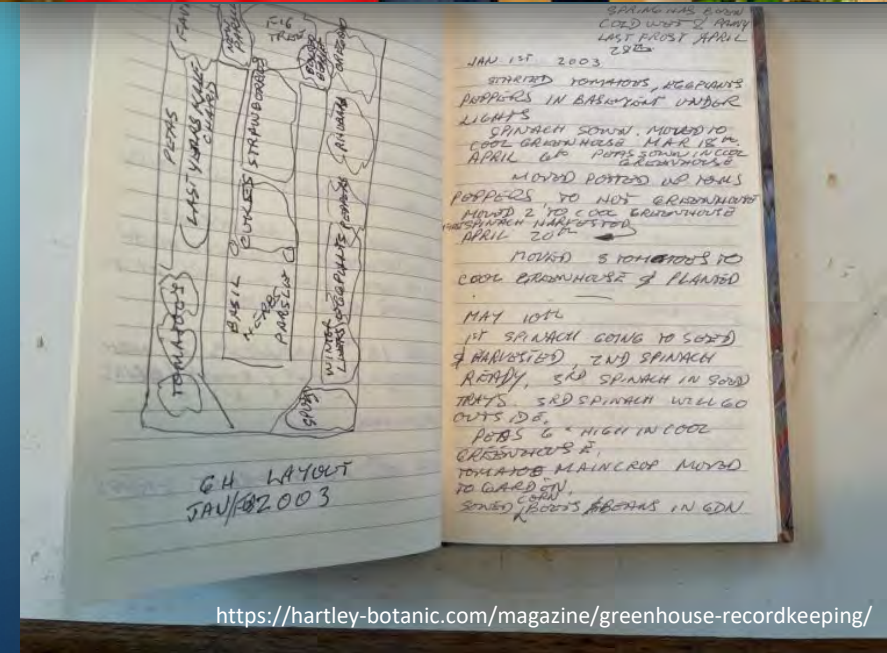 PEAS
LAST YEARS KALE
CHARD
FIG
TREE
TOMATOES
BASIL
PARSLEY
CUKES
STRAWBERRIES
WINTER
EGGPLANTS
PEPPERS
SPUDS
GH LAYOUT
JAN/FEB 2003
SPRING HAS BEEN
COLD WET & RAINY
LAST FROST APRIL
28th
JAN 1ST 2003
STARTED TOMATOES, EGGPLANTS
PEPPERS IN BASEMENT UNDER
LIGHTS
SPINACH SOWN. MOVED TO
COOL GREENHOUSE MAR 18th.
APRIL 6th PEAS SOWN IN COOL
GREENHOUSE
MOVED POTTED UP TOMS
PEPPERS TO HOT GREENHOUSE
MOVED 2 TO COOL GREENHOUSE
SPINACH HARVESTED
APRIL 20th
MOVED 5 TOMATOES TO
COOL GREENHOUSE & PLANTED
MAY 10th
1ST SPINACH GOING TO SEED
& HARVESTED, 2ND SPINACH
READY, 3RD SPINACH IN SEED
TRAYS. 3RD SPINACH WILL GO
OUTSIDE.
PEAS 6" HIGH IN COOL
GREENHOUSE.
TOMATOE MAINCROP MOVED
TO GARDEN.
SOWED CORN BEETS & BEANS IN GDN
https://hartley-botanic.com/magazine/greenhouse-recordkeeping/